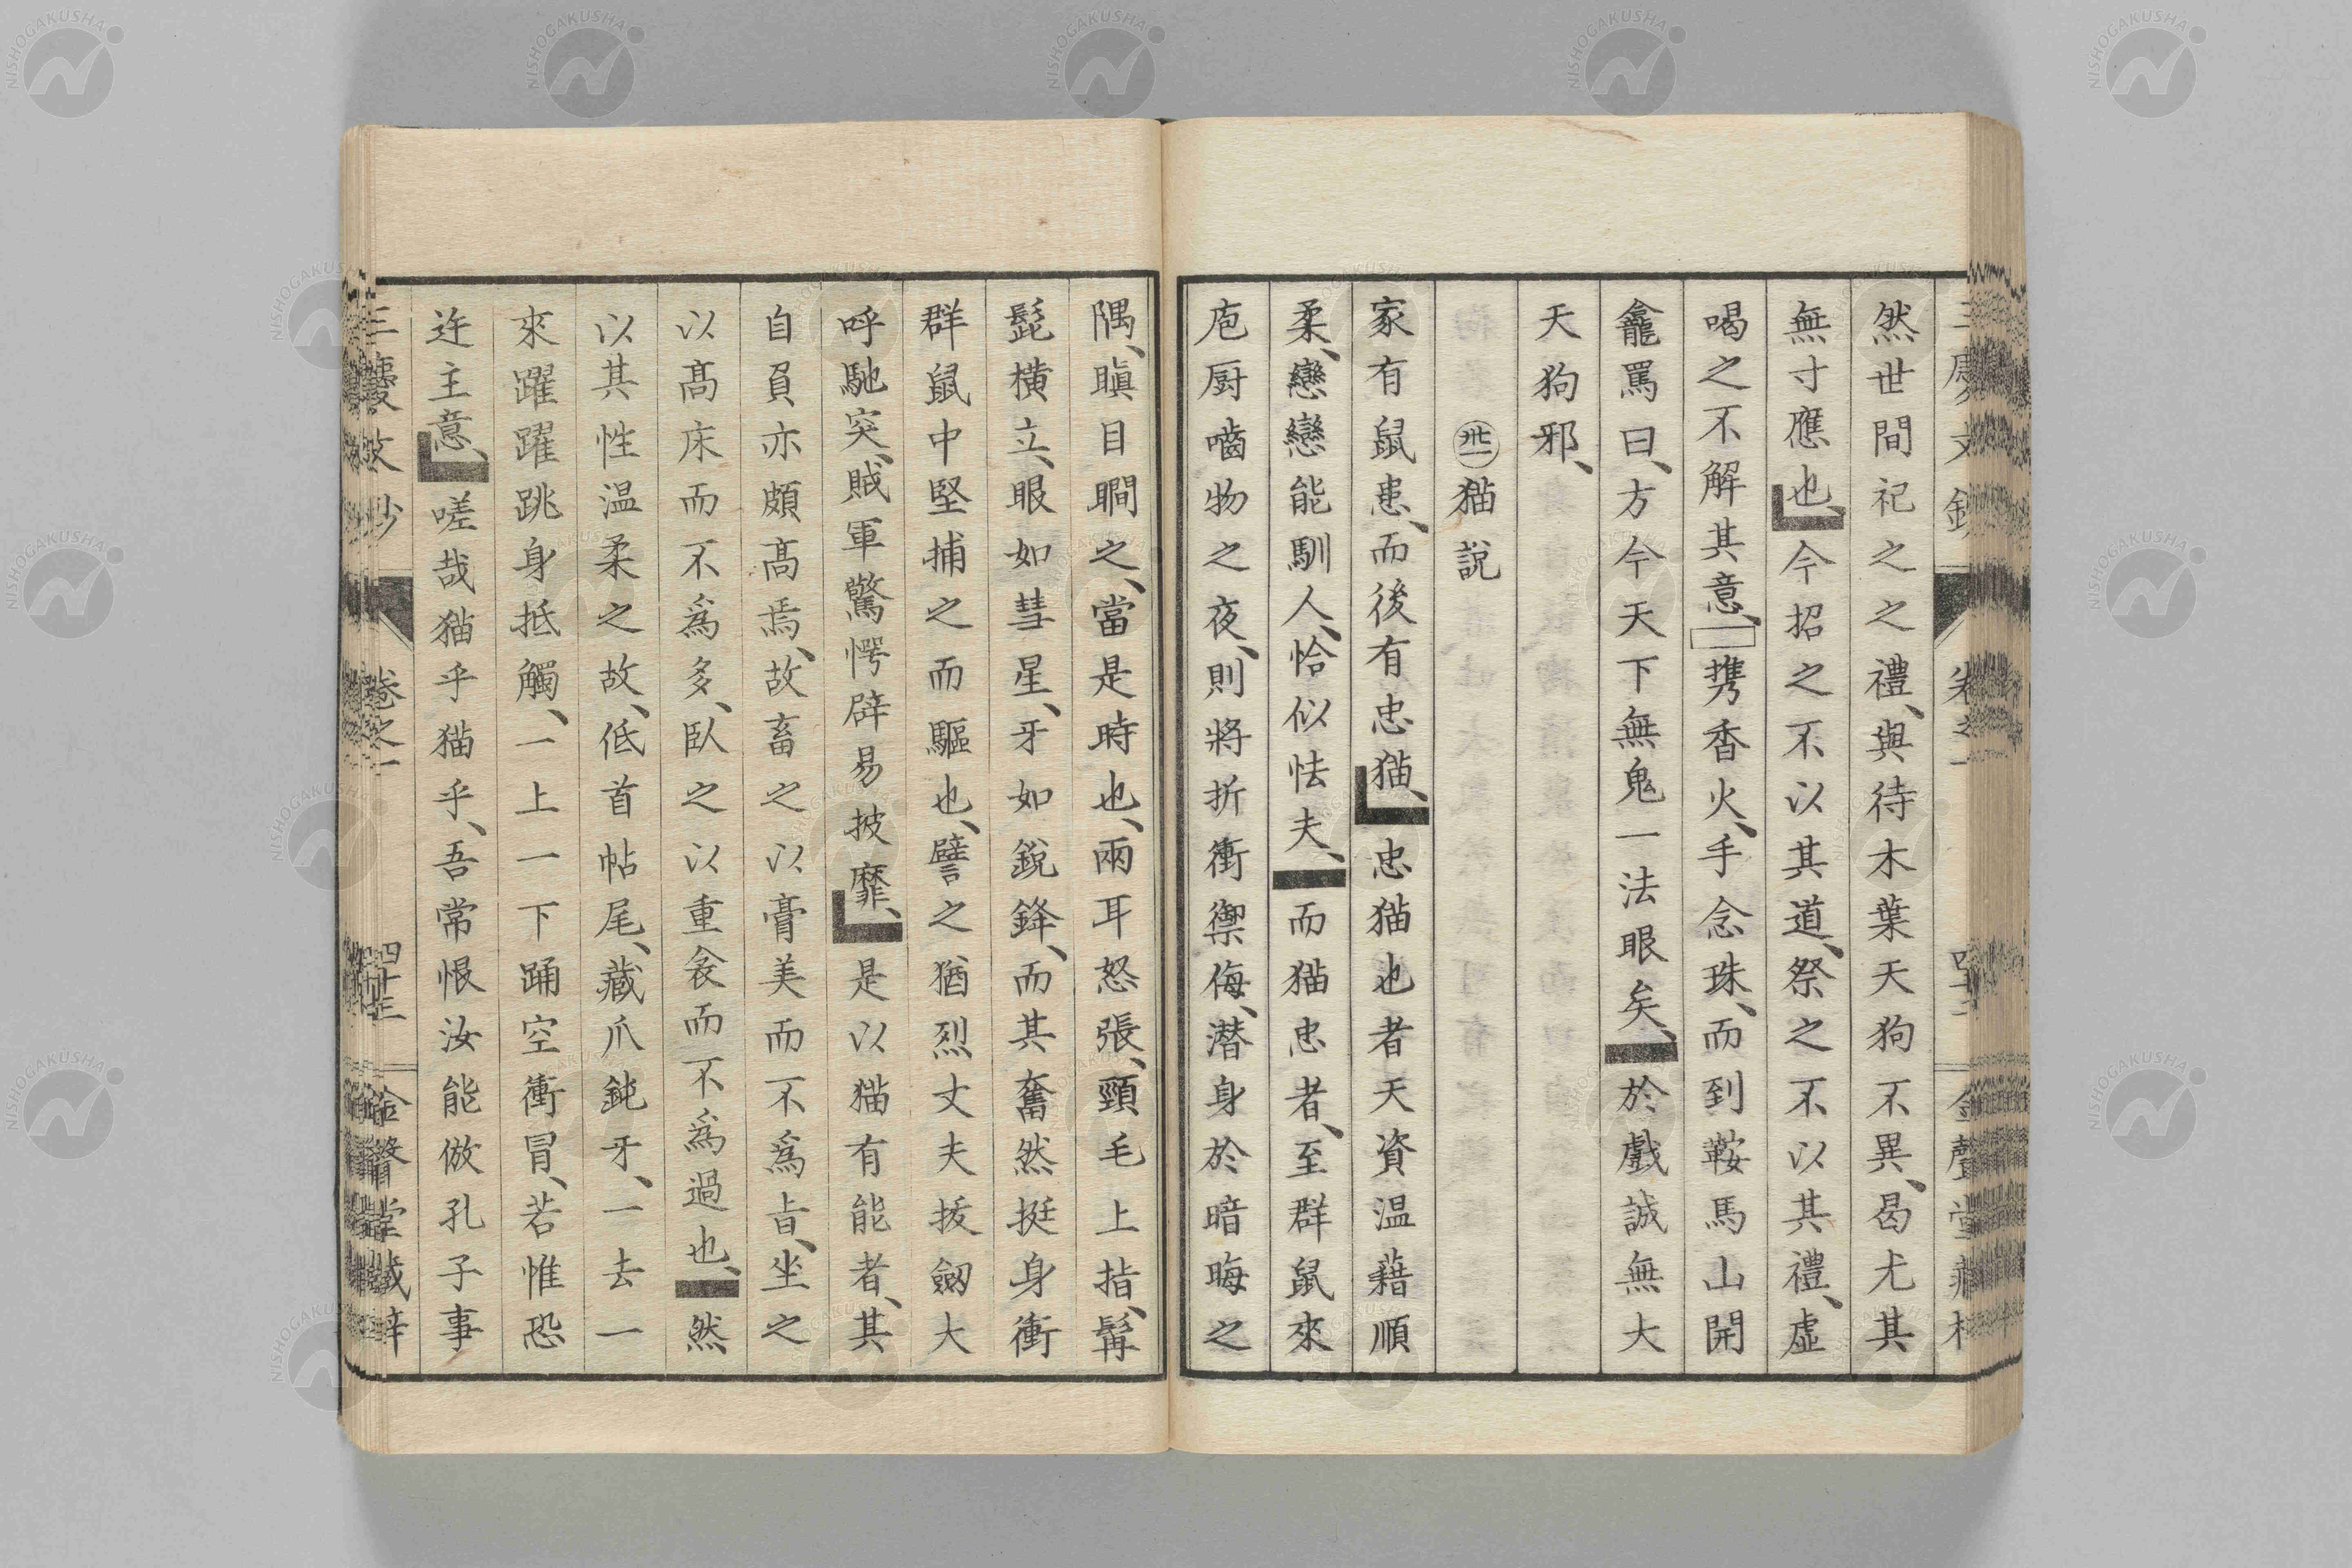 然世間祀之之禮、與待木葉天狗不異、曷尤其
無寸應也、今招之不以其道、祭之不以其禮、虛
喝之不解其意、携香火、手念珠、而到鞍馬山開
龕罵曰、方今天下無鬼一法眼矣、於戲誠無大
天狗邪、
㊂猫說
家有鼠患、而後有忠猫、忠猫也者天資温藉順
柔、戀戀能馴人、恰似怯夫、而猫忠者、至群鼠來
庖厨嚙物之夜、則將折衝禦侮、潛身於暗晦之
隅、瞋目瞷之、當是時也、兩耳怒張、頸毛上指、髯
髭橫立、眼如彗星、牙如銳鋒、而其奮然挺身衝
群鼠中堅捕之而驅也、譬之猶烈丈夫拔劔大
呼馳突、賊軍驚愕辟易披靡、是以猫有能者、其
自負亦頗高焉、故畜之以膏美而不爲旨、坐之
以高床而不爲多、臥之以重衾而不爲過也、然
以其性温柔之故、低首帖尾、藏爪鈍牙、一去一
來躍躍跳身抵觸、一上一下踊空衝冒、若惟恐
迕主意、嗟哉猫乎猫乎、吾常恨汝能倣孔子事
三慶文鈔 卷之一 四十三 金聲堂藏梓
NISHOGAKUSHA